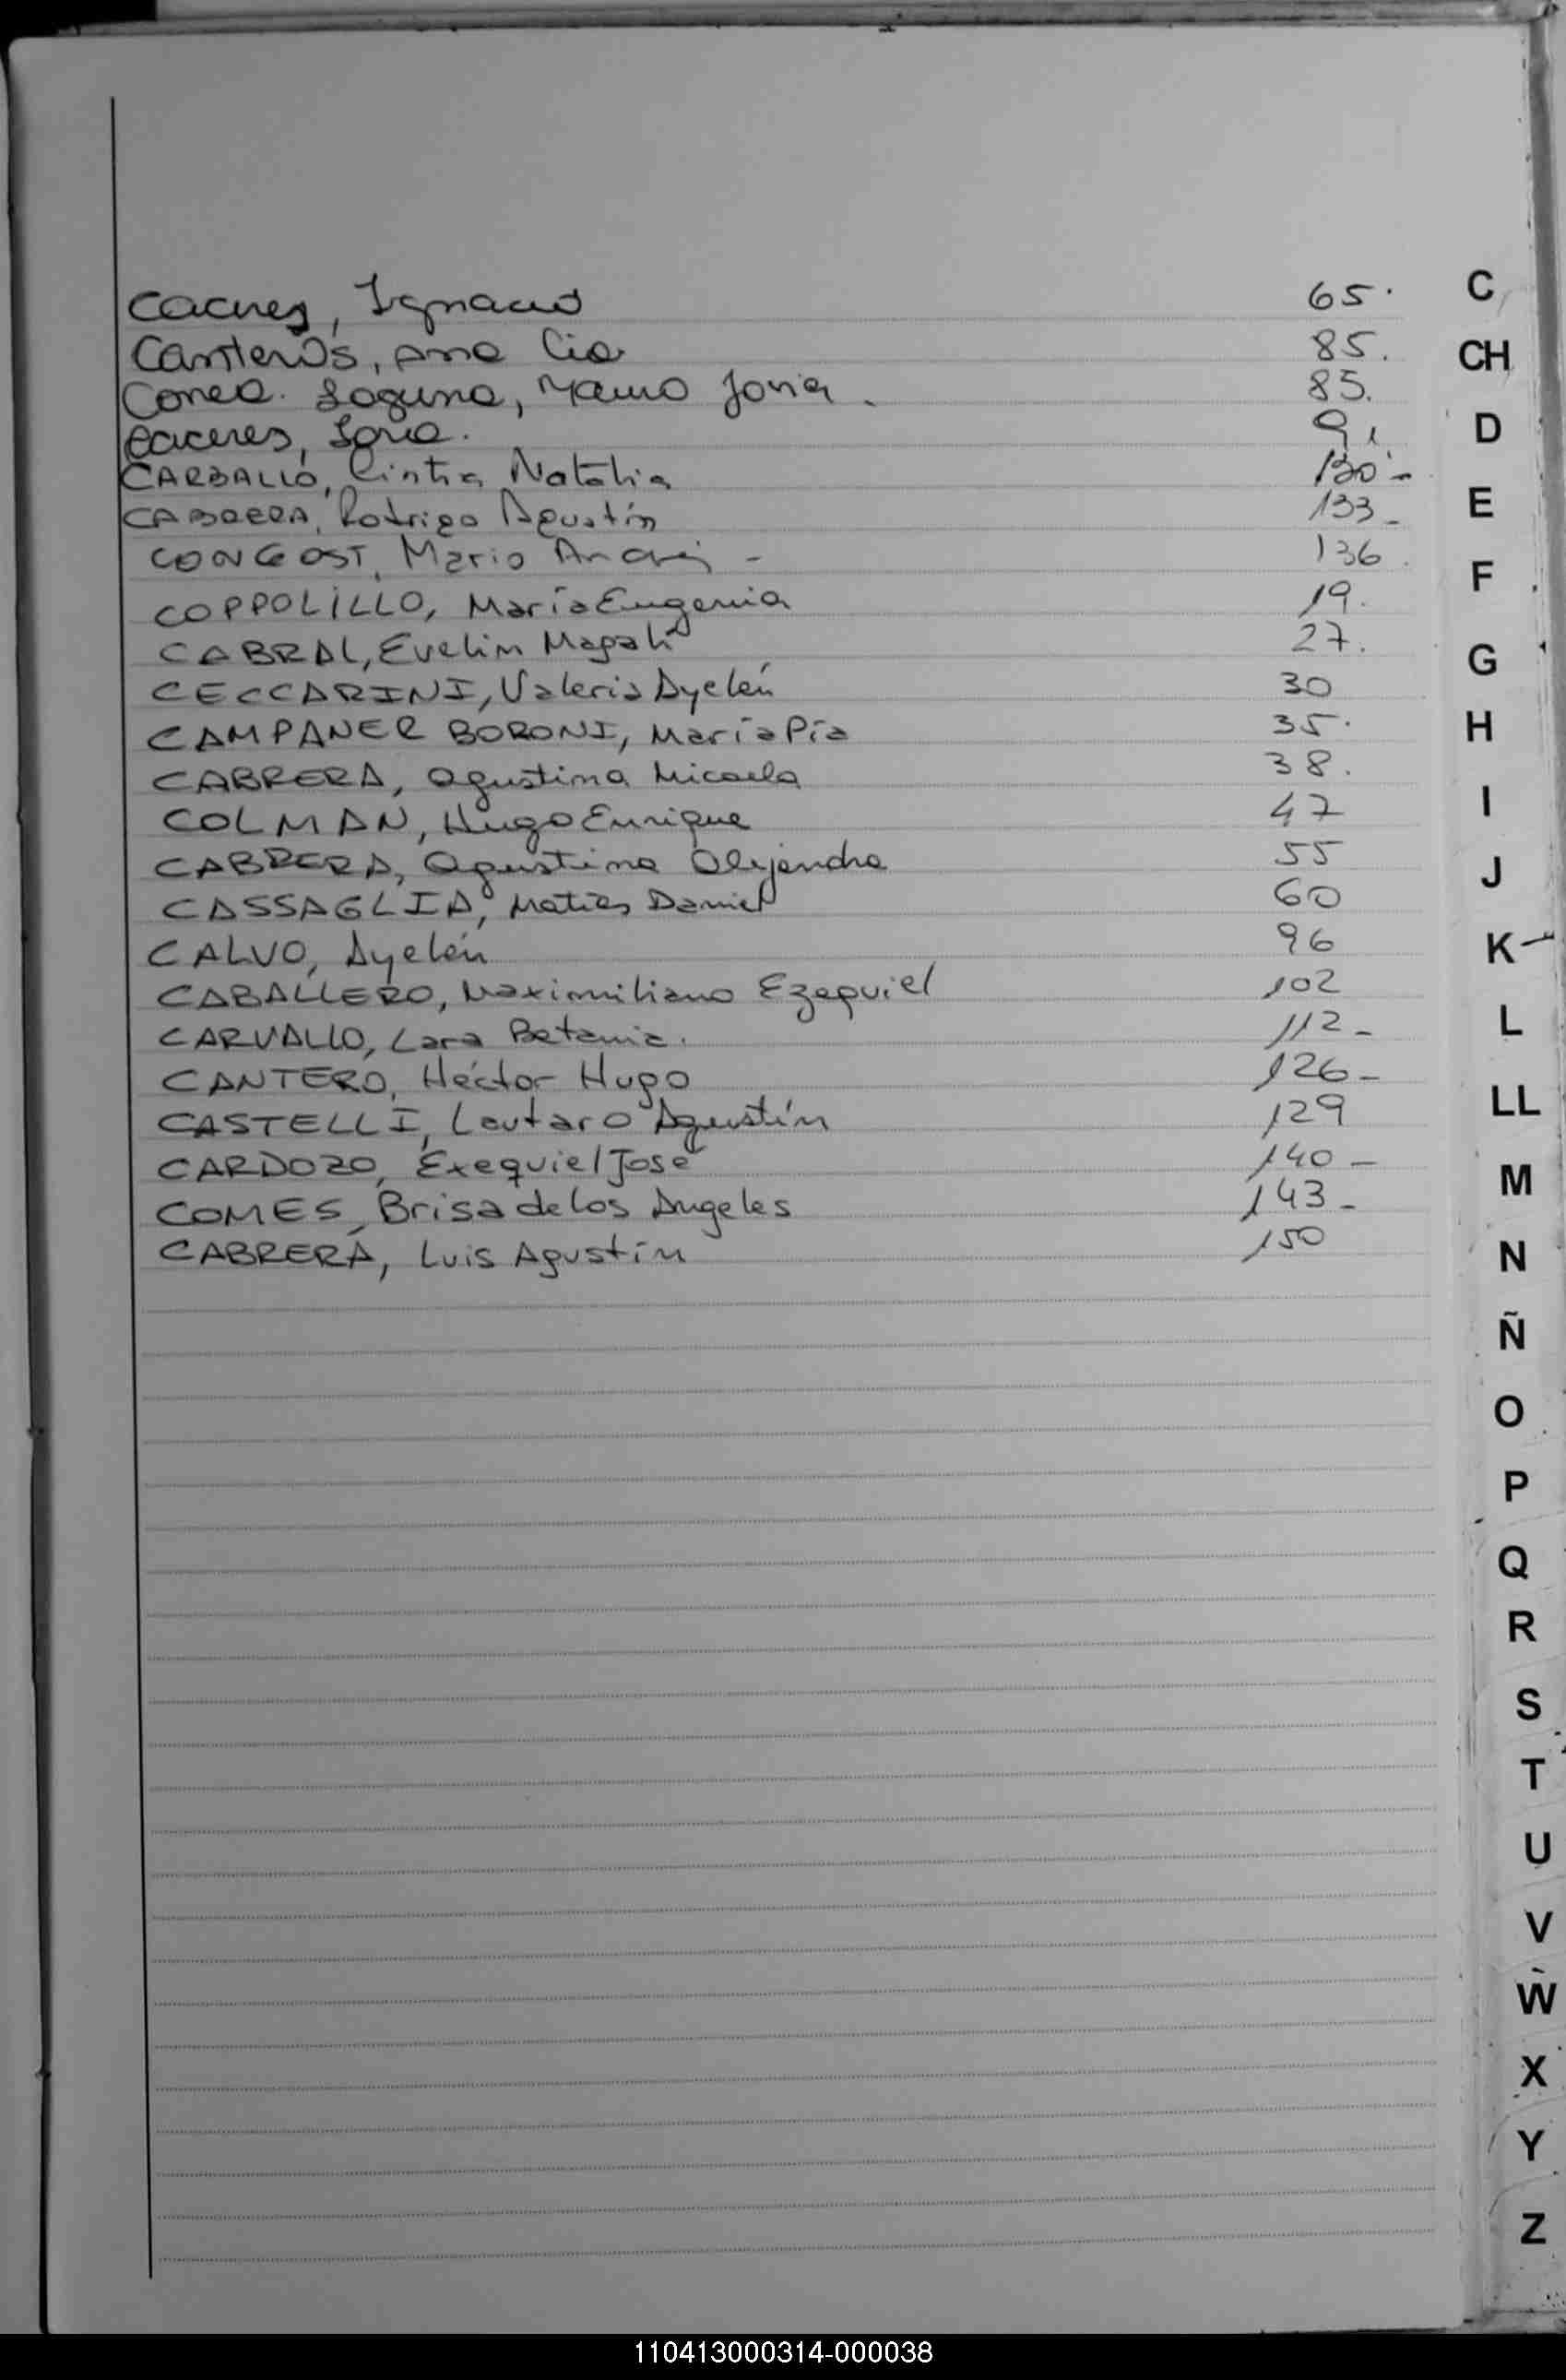 Caceres, Ignacio 65.
Canteros, Ana Lia 85.
Correa. Laguna, Mauro Jona. 85.
Caceres, Sofia. 9
CARBALLO, Cintia Natalia 130-
CABRERA, Rodrigo Agustín 133-
CONGOST, Mario Andrés - 136.
COPPOLILLO, María Eugenia 19.
CABRAL, Evelin Magalí 27.
CECCARINI, Valeria Ayelén 30
CAMPANER BORONI, María Pía 35.
CABRERA, Agustina Micaela 38.
COLMAN, Hugo Enrique 47
CABRERA, Agustina Alejandra 55
CASSAGLIA, Matías Daniel 60
CALVO, Ayelén 96
CABALLERO, Maximiliano Ezequiel 102
CARVALLO, Lara Betania. 112-
CANTERO, Héctor Hugo 126-
CASTELLI, Lautaro Agustín 129
CARDOZO, Exequiel José 140-
COMES, Brisa de los Angeles 143-
CABRERA, Luis Agustín 150
C
CH
D
E
F
G
H
I
J
K
L
LL
M
N
Ñ
O
P
Q
R
S
T
U
V
W
X
Y
Z
110413000314-000038